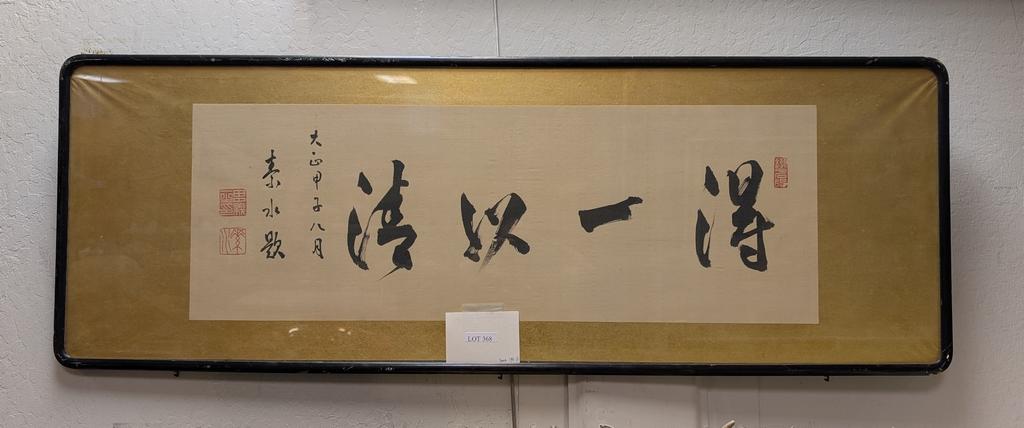 得一以清
大正甲子八月
素水題
LOT 368